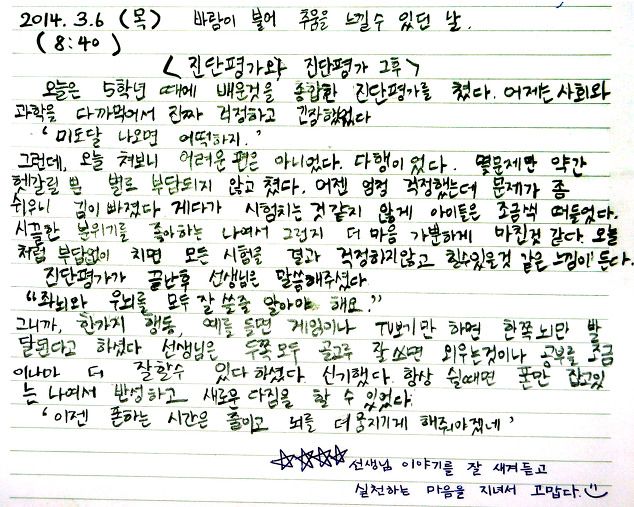 2014. 3.6 (목) 바람이 불어 추움을 느낄수 있던 날.
(8:40)
<진단평가와 진단평가 그후>
오늘은 5학년 때에 배운것을 종합한 진단평가를 쳤다. 어제는 사회와
과학을 다까먹어서 진짜 걱정하고 긴장했었다
'미도달 나오면 어떡하지.'
그런데, 오늘 쳐보니 어려운 편은 아니었다. 다행이었다. 몇문제만 약간
헷갈릴 뿐 별로 부담되지 않고 쳤다. 어젠 엄청 걱정했는데 문제가 좀
쉬우니 김이 빠졌다 게다가 시험치는것 같지 않게 아이들은 조금씩 떠들었다.
시끌한 분위기를 좋아하는 나여서 그런지 더 마음 가뿐하게 마친것 같다. 오늘
처럼 부담없이 치면 모든 시험을 결과 걱정하지않고 칠수있을것 같은 느낌이 든다.
진단평가가 끝난후 선생님은 말씀해주셨다
"좌뇌와 우뇌를 모두 잘 쓸줄 알아야 해요."
그니까, 한가지 행동, 예를 들면 게임이나 TV보기만 하면 한쪽 뇌만 발
달된다고 하셨다 선생님은 두쪽 모두 골고루 잘 쓰면 외우는것이나 공부를 조금
이나마 더 잘할수 있다 하셨다. 신기했다. 항상 쉴때면 폰만 잡고있
는 나여서 반성하고 새로운 다짐을 할 수 있었다.
'이젠 폰하는 시간은 줄이고 뇌를 더 움직이게 해줘야겠네'
☆☆☆☆ 선생님 이야기를 잘 새겨듣고
실천하는 마음을 지녀서 고맙다.